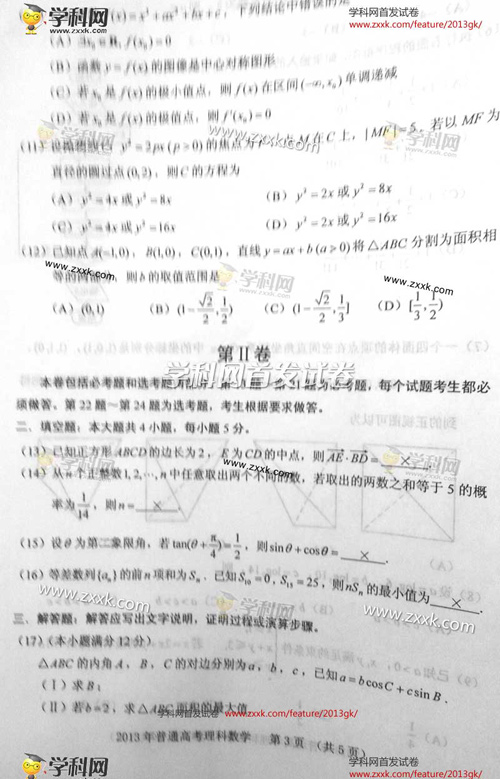 学科网 zxxk.com
学科网首发试卷
www.zxxk.com/feature/2013gk/
下列结论中错误的是
(A) f(x₀)=0
(B) 函数 y=f(x) 的图像是中心对称图形
(C) 若 x₀ 是 f(x) 的极小值点，则 f(x) 在区间 (-∞, x₀) 单调递减
(D) 若 x₀ 是 f(x) 的极值点，则 f'(x₀)=0
(11) 设抛物线 y²=2px(p>0) 的焦点为 点 M 在 C 上，|MF|=5，若以 MF 为
直径的圆过点 (0,2)，则 C 的方程为
(A) y²=4x 或 y²=8x (B) y²=2x 或 y²=8x
(C) y²=4x 或 y²=16x (D) y²=2x 或 y²=16x
(12) 已知点 A(-1,0)，B(1,0)，C(0,1)，直线 y=ax+b(a>0) 将 △ABC 分割为面积相
等的两部分，则 b 的取值范围是
(A) (0,1) (B) (1-√2/2, 1/2) (C) (1-√2/2, 1/3] (D) [1/3, 1/2)
第 II 卷
学科网首发试卷
本卷包括必考题和选考题两部分。 为必考题，每个试题考生都必
须做答。第 22 题～第 24 题为选考题，考生根据要求做答。
二. 填空题：本大题共 4 小题，每小题 5 分。
(13) 已知正方形 ABCD 的边长为 2，E 为 CD 的中点，则 AE·BD= ×
(14) 从 n 个正整数 1,2,…,n 中任意取出两个不同的数，若取出的两数之和等于 5 的概
率为 1/14，则 n= ×
(15) 设 θ 为第二象限角，若 tan(θ+π/4)=1/2，则 sinθ+cosθ= ×
(16) 等差数列 {aₙ} 的前 n 项和为 Sₙ．已知 S₁₀=0，S₁₅=25，则 nSₙ 的最小值为 ×
三. 解答题：解答应写出文字说明，证明过程或演算步骤。
(17) (本小题满分 12 分)
△ABC 的内角 A，B，C 的对边分别为 a，b，c，已知 a=bcosC+csinB．
(Ⅰ) 求 B；
(Ⅱ) 若 b=2，求 △ABC 面积的最大值
学科网首发试卷 www.zxxk.com/feature/2013gk/
2013年普通高考理科数学 第 3 页 (共 5 页)
学科网 zxxk.com